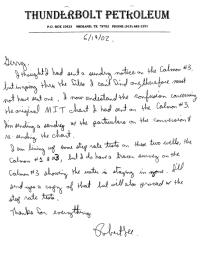 THUNDERBOLT PETROLEUM
P.O. BOX 10523 MIDLAND, TX 79702 PHONE (915)
6/19/02
Gerry,
I thought I had sent a sundry notice on the Calmon #3.
but looking thru the files I can't find one, therefore must
not have sent one. I now understand the confusion concerning
the original M.I.T. chart I had sent on the Calmon #3.
I'm sending a sundry w/ the particulars on the conversion &
re-sending the chart.
I am lining up some step rate tests on these two wells, the
Calmon #2 & #3, but I do have a tracer survey on the
Calmon #3 showing the water is staying in zone. I'll
send you a copy of that but will also proceed w/ the
step rate tests.
Thanks for everything
Robert Lee